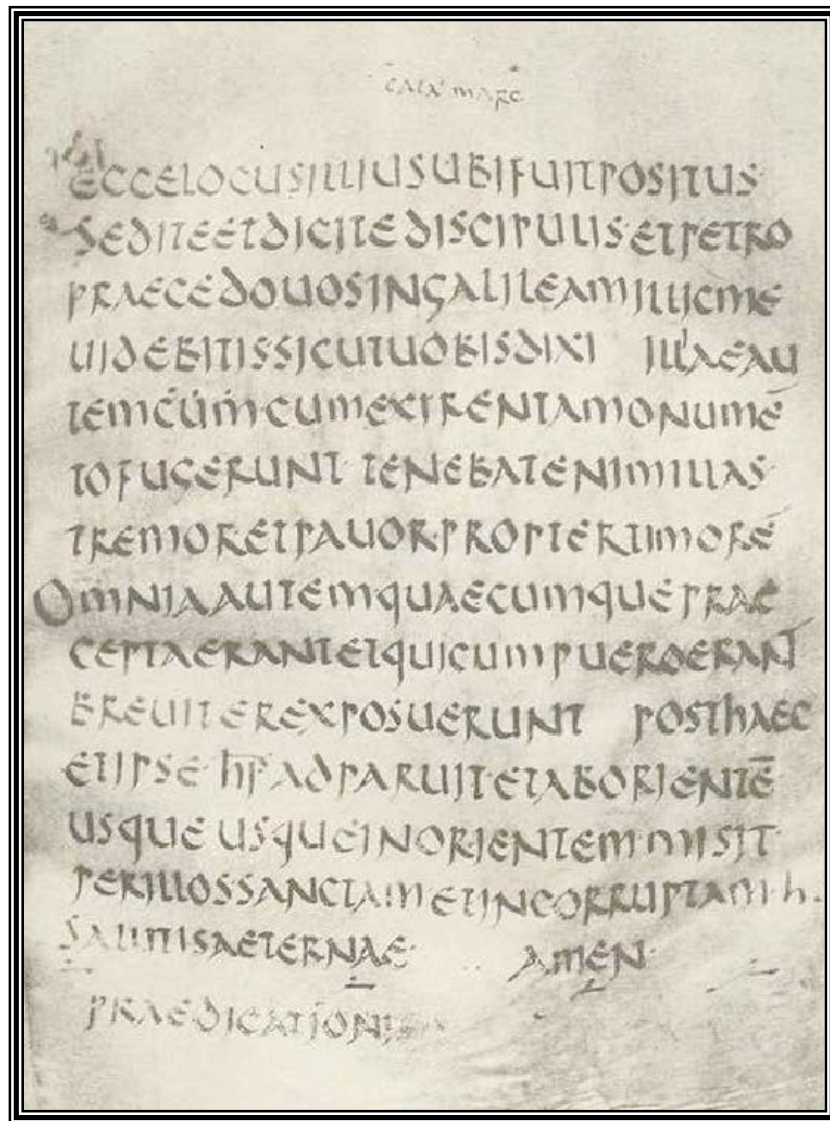 CATA MARC
ECCELOCUSILLIUSUBIFUITPOSITUS
SEDITEETDICITEDISCIPULIS·ETPETRO
PRAECEDOUOSINGALILEAMILLICME
UIDEBITISSICUTUOBISDIXI ILLAEAU
TEMCUM·CUMEXIRENTAMONUMĒ
TOFUGERUNT TENEBATENIMILLAS·
TREMORETPAUOR·PROPTERTIMORĒ
OMNIAAUTEMQUAECUMQUEPRAE
CEPTAERANTETQUICUMPUEROERANT
BREUITEREXPOSUERUNT POSTHAEC
ETIPSE·HĪS̄ADPARUIT·ETABORIENTĒ
USQUE USQUEINORIENTEM·MISIT·
PERILLOSSANCTAMETINCORRUPTAM·H·
SALUTISAETERNAE· AMEN·
PRAEDICATIONI